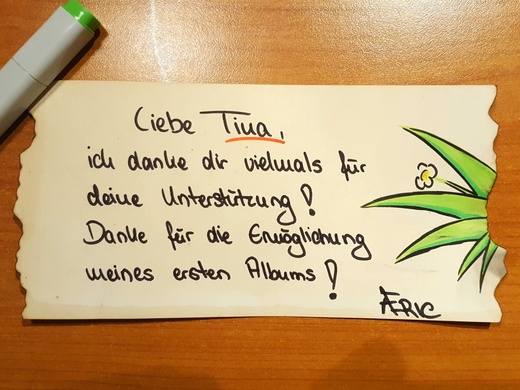 Liebe Tina,
ich danke dir vielmals für
deine Unterstützung!
Danke für die Ermöglichung
meines ersten Albums!
ÆRIC